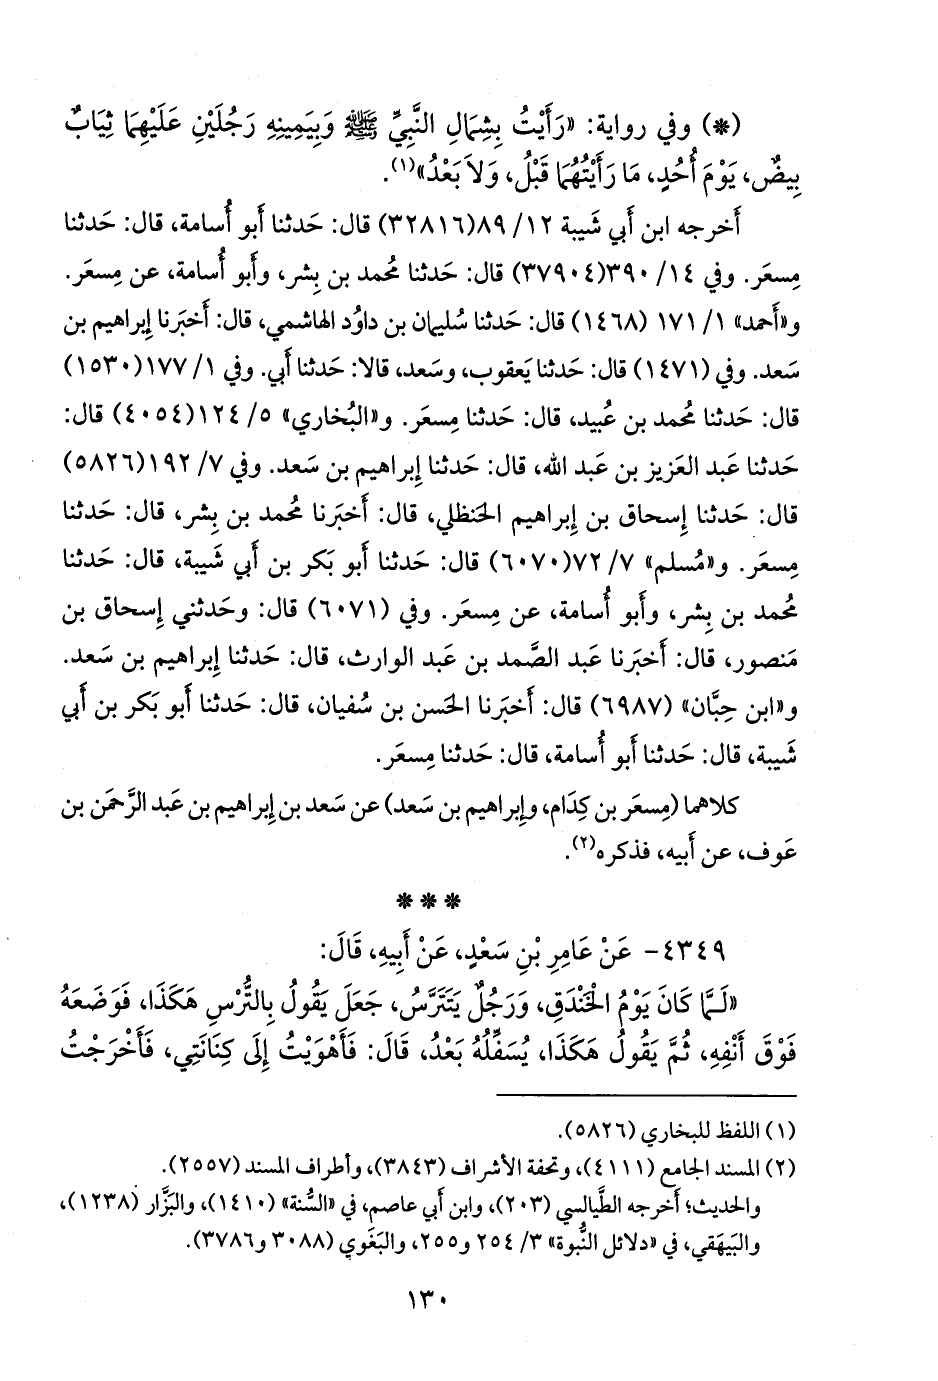 (*) وفي رواية: «رَأَيْتُ بِشِمَالِ النَّبِيِّ ﷺ وَبِيَمِينِهِ رَجُلَيْنِ عَلَيْهِمَا ثِيَابٌ
بِيضٌ، يَوْمَ أُحُدٍ، مَا رَأَيْتُهُمَا قَبْلُ، وَلاَ بَعْدُ»(١).
أَخرجه ابن أَبي شَيبة ١٢/ ٨٩(٣٢٨١٦) قال: حَدثنا أَبو أُسامة، قال: حَدثنا
مِسعَر. وفي ١٤/ ٣٩٠(٣٧٩٠٤) قال: حَدثنا مُحمد بن بِشر، وأَبو أُسامة، عن مِسعَر.
و«أَحمد» ١/ ١٧١ (١٤٦٨) قال: حَدثنا سُليمان بن داوُد الهاشمي، قال: أَخبَرنا إِبراهيم بن
سَعد. وفي (١٤٧١) قال: حَدثنا يَعقوب، وسَعد، قالا: حَدثنا أَبي. وفي ١/ ١٧٧(١٥٣٠)
قال: حَدثنا مُحمد بن عُبيد، قال: حَدثنا مِسعَر. و«البُخاري» ٥/ ١٢٤(٤٠٥٤) قال:
حَدثنا عَبد العَزيز بن عَبد الله، قال: حَدثنا إِبراهيم بن سَعد. وفي ٧/ ١٩٢(٥٨٢٦)
قال: حَدثنا إِسحاق بن إِبراهيم الحَنظلي، قال: أَخبَرنا مُحمد بن بِشر، قال: حَدثنا
مِسعَر. و«مُسلم» ٧/ ٧٢(٦٠٧٠) قال: حَدثنا أَبو بَكر بن أَبي شَيبة، قال: حَدثنا
مُحمد بن بِشر، وأَبو أُسامة، عن مِسعَر. وفي (٦٠٧١) قال: وحَدثني إِسحاق بن
مَنصور، قال: أَخبَرنا عَبد الصَّمد بن عَبد الوارث، قال: حَدثنا إِبراهيم بن سَعد.
و«ابن حِبَّان» (٦٩٨٧) قال: أَخبَرنا الحَسن بن سُفيان، قال: حَدثنا أَبو بَكر بن أَبي
شَيبة، قال: حَدثنا أَبو أُسامة، قال: حَدثنا مِسعَر.
كلاهما (مِسعَر بن كِدَام، وإِبراهيم بن سَعد) عن سَعد بن إِبراهيم بن عَبد الرَّحمَن بن
عَوف، عن أَبيه، فذكره(٢).
***
٤٣٤٩- عَنْ عَامِرِ بْنِ سَعْدٍ، عَنْ أَبِيهِ، قَالَ:
«لَـمَّا كَانَ يَوْمُ الْخَنْدَقِ، وَرَجُلٌ يَتَتَرَّسُ، جَعَلَ يَقُولُ بِالتُّرْسِ هَكَذَا، فَوَضَعَهُ
فَوْقَ أَنْفِهِ، ثُمَّ يَقُولُ هَكَذَا، يُسَفِّلُهُ بَعْدُ، قَالَ: فَأَهْوَيْتُ إِلَى كِنَانَتِي، فَأَخْرَجْتُ
(١) اللفظ للبخاري (٥٨٢٦).
(٢) المسند الجامع (٤١١١)، وتحفة الأشراف (٣٨٤٣)، وأطراف المسند (٢٥٥٧).
والحديث؛ أَخرجه الطَّيالسي (٢٠٣)، وابن أَبي عاصم، في «السُّنة» (١٤١٠)، والبَزَّار (١٢٣٨)،
والبَيهَقي، في «دلائل النُّبوة» ٣/ ٢٥٤ و٢٥٥، والبَغَوي (٣٠٨٨ و٣٧٨٦).
١٣٠